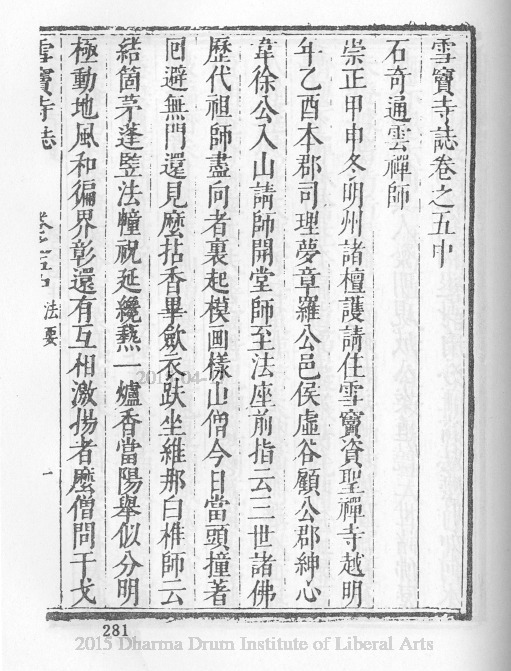 雪竇寺誌卷之五中
石奇通雲禪師
崇正甲申冬明州諸檀護請住雪竇資聖禪寺越明
年乙酉本郡司理夢章羅公邑侯虛谷顧公郡紳心
韋徐公入山請師開堂師至法座前指云三世諸佛
歷代祖師盡向者裏起模画樣山僧今日當頭撞著
囘避無門還見麼拈香畢歛衣趺坐維那白椎師云
結箇茅蓬竪法幢祝延纔爇一爐香當陽舉似分明
極動地風和徧界彰還有互相激揚者麼僧問干戈
雪竇寺誌 卷之五中 法要 一
281
2015 Dharma Drum Institute of Liberal Arts